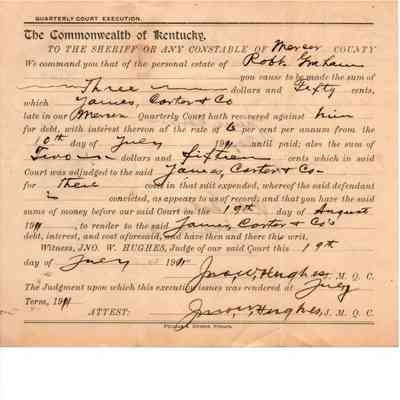 QUARTERLY COURT EXECUTION.
The Commonwealth of Kentucky,
TO THE SHERIFF OR ANY CONSTABLE OF Mercer COUNTY
We command you that of the personal estate of Robt Graham
you cause to be made the sum of
Three dollars and Fifty cents,
which James, Carter & Co
late in our Mercer Quarterly Court hath recovered against him
for debt, with interest thereon at the rate of 6 per cent per annum from the
10th day of July 1911 until paid; also the sum of
Two dollars and fifteen cents which in said
Court was adjudged to the said James, Carter & Co
for there costs in that suit expended, whereof the said defendant
is convicted, as appears to us of record; and that you have the said
sums of money before our said Court on the 19th day of August
1911, to render to the said James, Carter & Co's
debt, interest, and cost aforesaid, and have then and there this writ.
Witness, JNO. W. HUGHES, Judge of our said Court this 19th
day of July 1911
Jno. W. Hughes, J. M. Q. C.
The Judgment upon which this execution issues was rendered at July
Term, 1911
ATTEST: Jno. W. Hughes, J. M. Q. C.